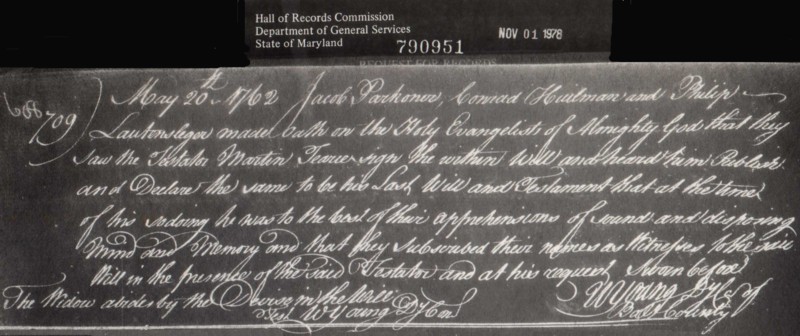 Hall of Records Commission
Department of General Services
State of Maryland
790951
NOV 01 1978
REQUEST FOR RECORDS
709
May 20th 1762 Jacob Parkoner, Conrad Huilman and Philip
Lautenslegor made oath on the Holy Evangelists of Almighty God that they
saw the Testator Martin Teaner sign the within Will and heard him Publish
and Declare the same to be his Last Will and Testament that at the time
of his so doing he was to the best of their apprehensions of sound and disposing
Mind and Memory and that they subscribed their names as Witnesses to the said
Will in the presence of the Said Testator and at his request Sworn before
The Widow abides by the Devise in the Will
Test W Young Dy Com
W Young Dy C of
Balt County